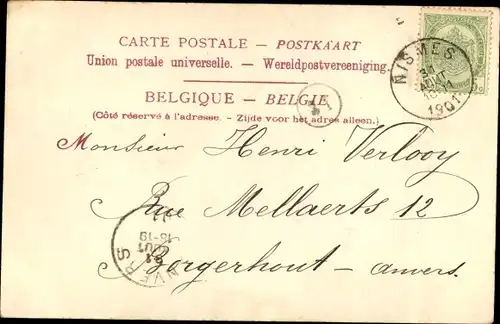 CARTE POSTALE – POSTKAART
Union postale universelle. – Wereldpostvereeniging.
BELGIQUE – BELGIE
(Côté réservé à l'adresse. – Zijde voor het adres alleen.)
NISMES
AOUT
1901
Monsieur Henri Verlooy
Rue Mellaerts 12
Borgerhout – anvers.